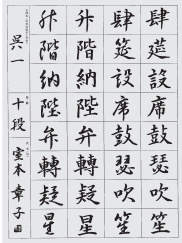 肆筵設席鼓瑟吹笙
肆筵設席鼓瑟吹笙
升階納陛弁轉疑星
升階納陛弁轉疑星
呉一 十段 室本章子